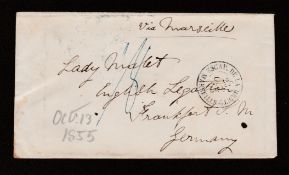 via Marseille
Lady Malet
English Legation
Frankfurt S. M
Germany
Oct. 13
1855